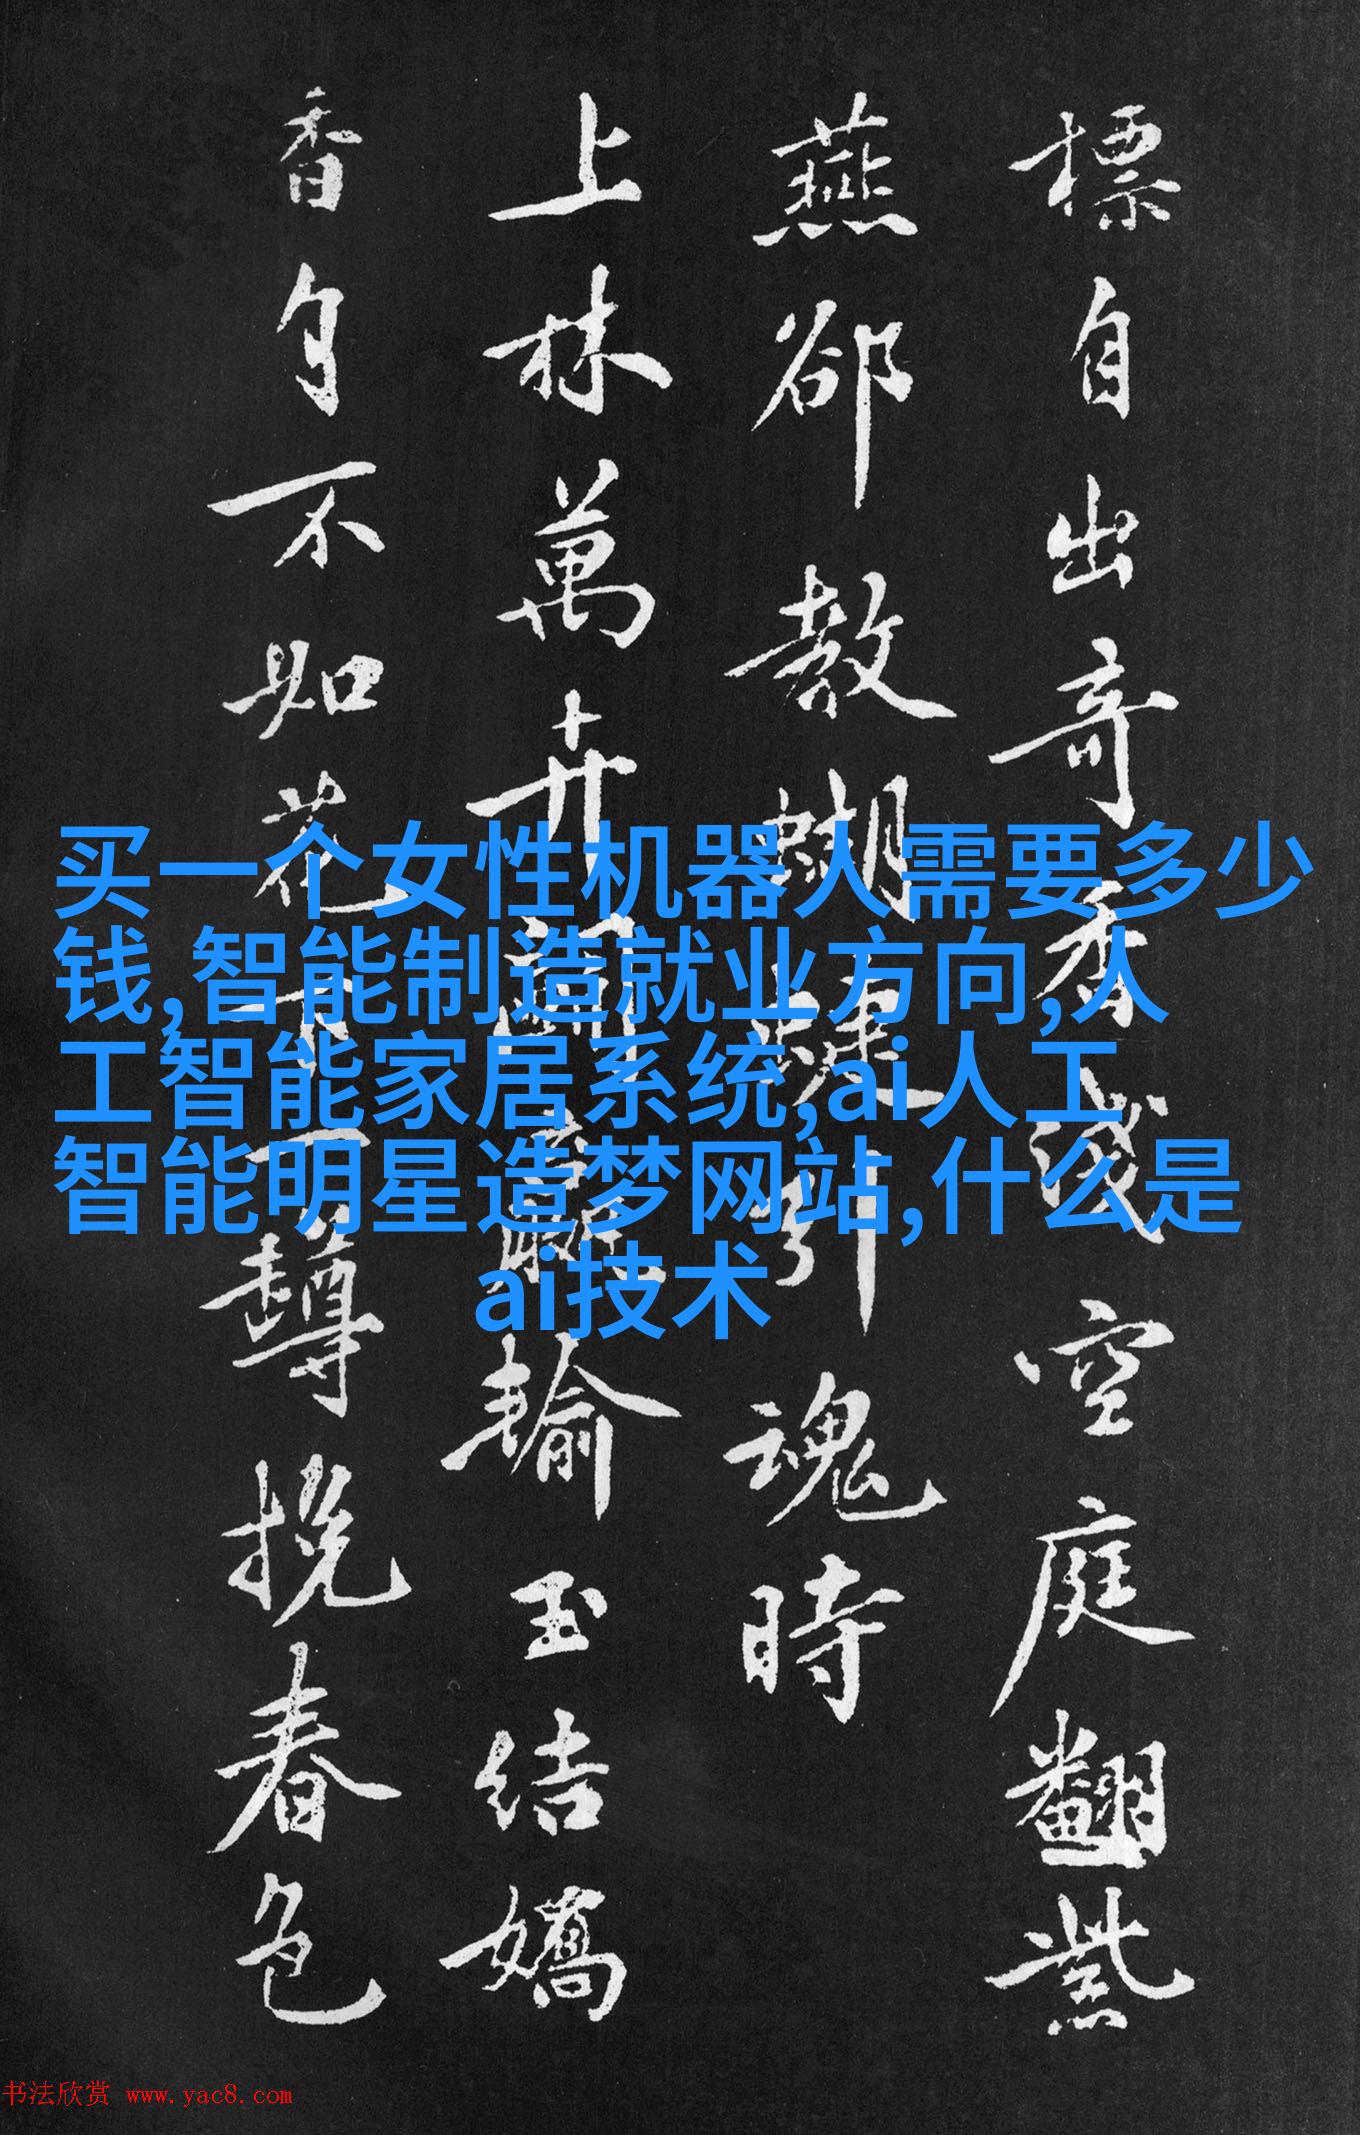 標自出奇香淺空庭翻紫
燕郤教蝴蝶引魂時
上林萬卉開輸玉結嬌
香不如花下一罇挽春色
买一个女性机器人需要多少
钱,智能制造就业方向,人
工智能家居系统,ai人工
智能明星造梦网站,什么是
ai技术
书法欣赏 www.yac8.com